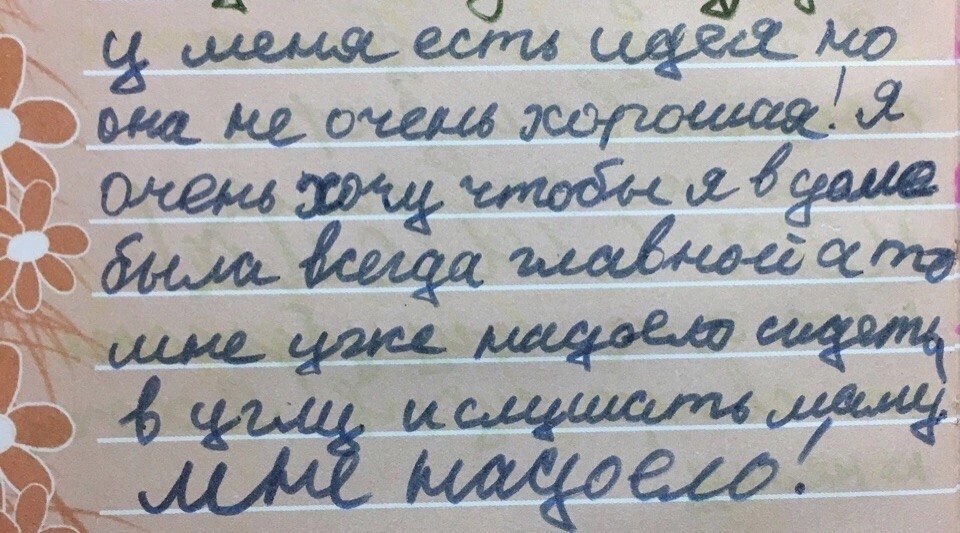 у меня есть идея но
она не очень хорошая! Я
очень хочу чтобы я в доме
была всегда главной а то
мне уже надоело сидеть
в углу и слушать маму
мне надоело!